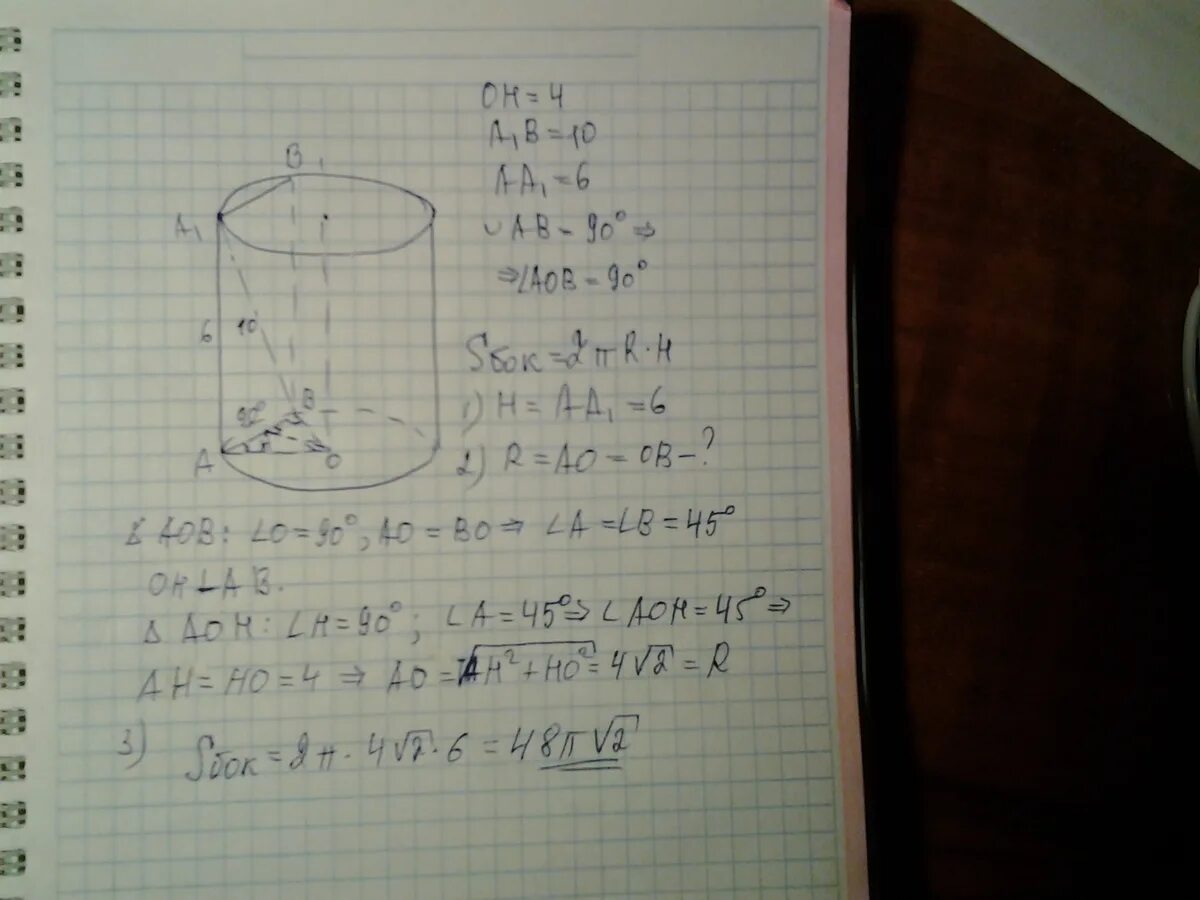 B₁
A₁
6
10
90°
B
A
O
OH = 4
A₁B = 10
AA₁ = 6
∪AB - 90° ⇒
⇒ ∠AOB - 90°
Sбок = 2πR·H
1) H = AA₁ = 6
2) R = AO = OB - ?
Δ AOB: ∠O = 90°, AO = BO ⇒ ∠A = ∠B = 45°
OH ⊥ AB.
Δ AOH: ∠H = 90°; ∠A = 45° ⇒ ∠AOH = 45° ⇒
AH = HO = 4 ⇒ AO = √AH² + HO² = 4√2 = R
3) Sбок = 2π · 4√2 · 6 = 48π√2